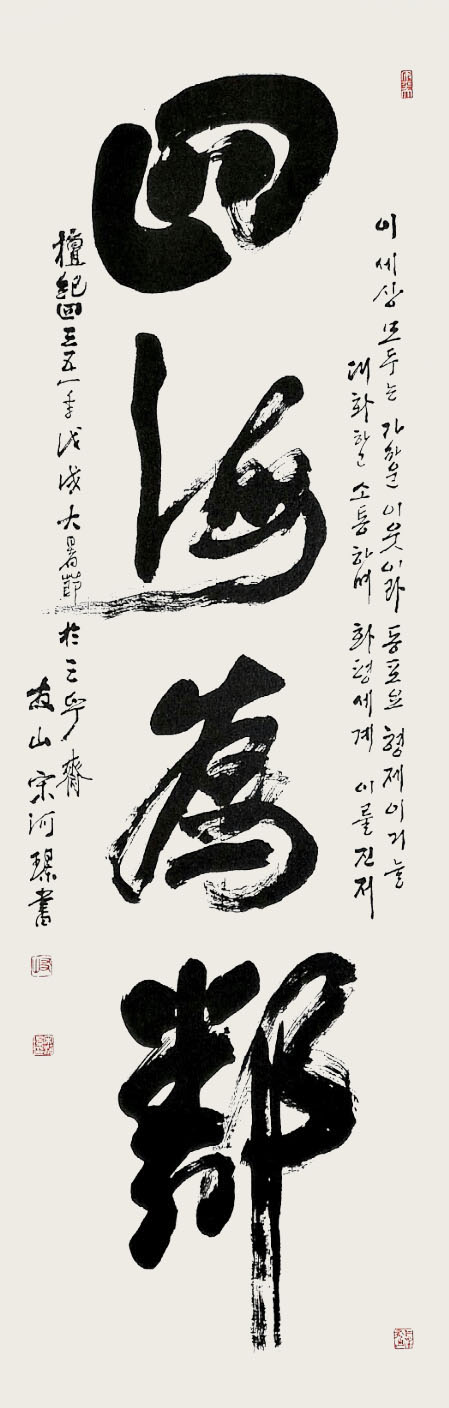 四海為鄰
이 세상 모두는 이웃이라 동포요 형제이거늘
대화하고 소통하며 화평세계 이룰진저
檀紀四三五一秊戊戌大暑節 於三 齋
友山 宋河璟書